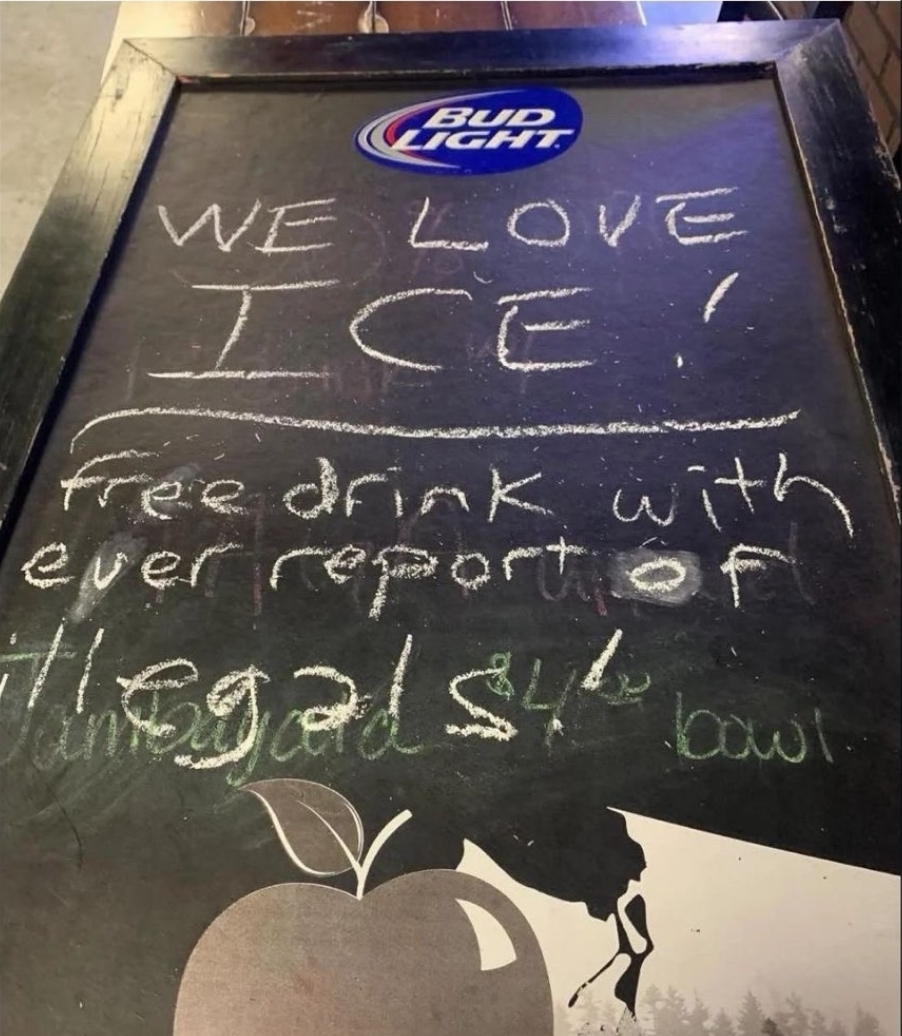 BUD
LIGHT
WE LOVE
ICE!
free drink with
ever report of
illegals!
$4 bowl